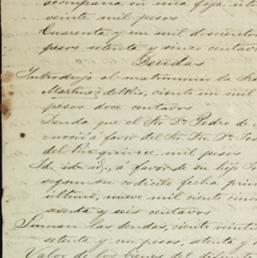 acompaña en una foja
veinte mil pesos
Cuarenta y un mil doscientos
pesos setenta y cinco centavos
Deudas
Introdujo al matrimonio la
Martinez del Rio, ciento un mil
pesos doce centavos
Deuda que el Sr. Dn. Pedro de
á favor del Sr. Dn.
del Rio quince mil pesos
Id. id. id., á favor de su hijo
segun su codicilo fecha
último, nueve mil ciento
y seis centavos
Suman las deudas, ciento
setenta y un pesos,
Valor de los bienes del